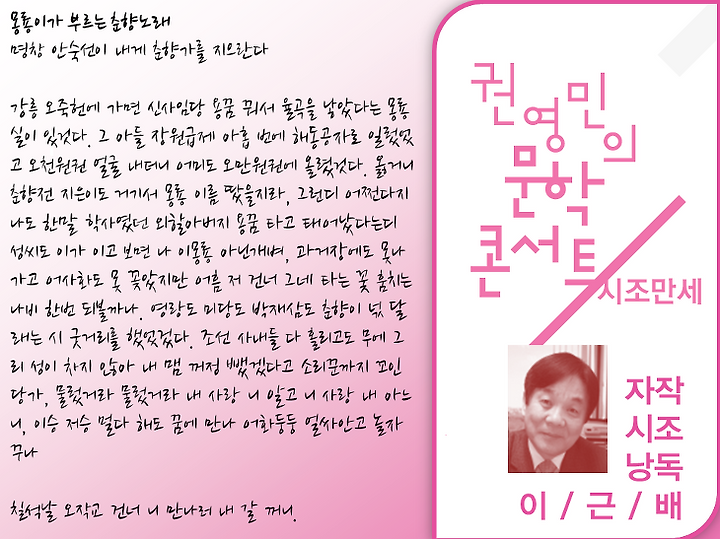 몽룡이가 부르는 춘향노래
명창 안숙선이 내게 춘향가를 지으란다
강릉 오죽헌에 가면 신사임당 용꿈 꿔서 율곡을 낳았다는 몽룡
실이 있겄다. 그 아들 장원급제 아홉 번에 해동공자로 일렀었
고 오천원권 얼굴 내더니 어미도 오만원권에 올렸겄다. 옳거니
춘향전 지은이도 거기서 몽룡 이름 땄을지라, 그런디 어쩐다지
나도 한말 학사였던 외할아버지 용꿈 타고 태어났다는디
성씨도 이가 이고 보면 나 이몽룡 아닌개벼, 과거장에도 못나
가고 어사화도 못 꽂았지만 어름 저 건너 그네 타는 꽃 훔치는
나비 한번 되볼까나. 영랑도 미당도 박재삼도 춘향이 넋 달
래는 시 굿거리를 했었겄다. 조선 사내들 다 홀리고도 무에 그
리 성이 차지 않아 내 맴 꺼정 뺐겠다고 소리꾼까지 꼬인
당가, 물렀거라 물렀거라 내 사랑 니 알고 니 사랑 내 아느
니, 이승 저승 멀다 해도 꿈에 만나 어화둥둥 얼싸안고 놀자
꾸나
칠석날 오작교 건너 니 만나러 내 갈 꺼니.
권영민의
문학
콘서트
시조만세
자작
시조
낭독
이 / 근 / 배